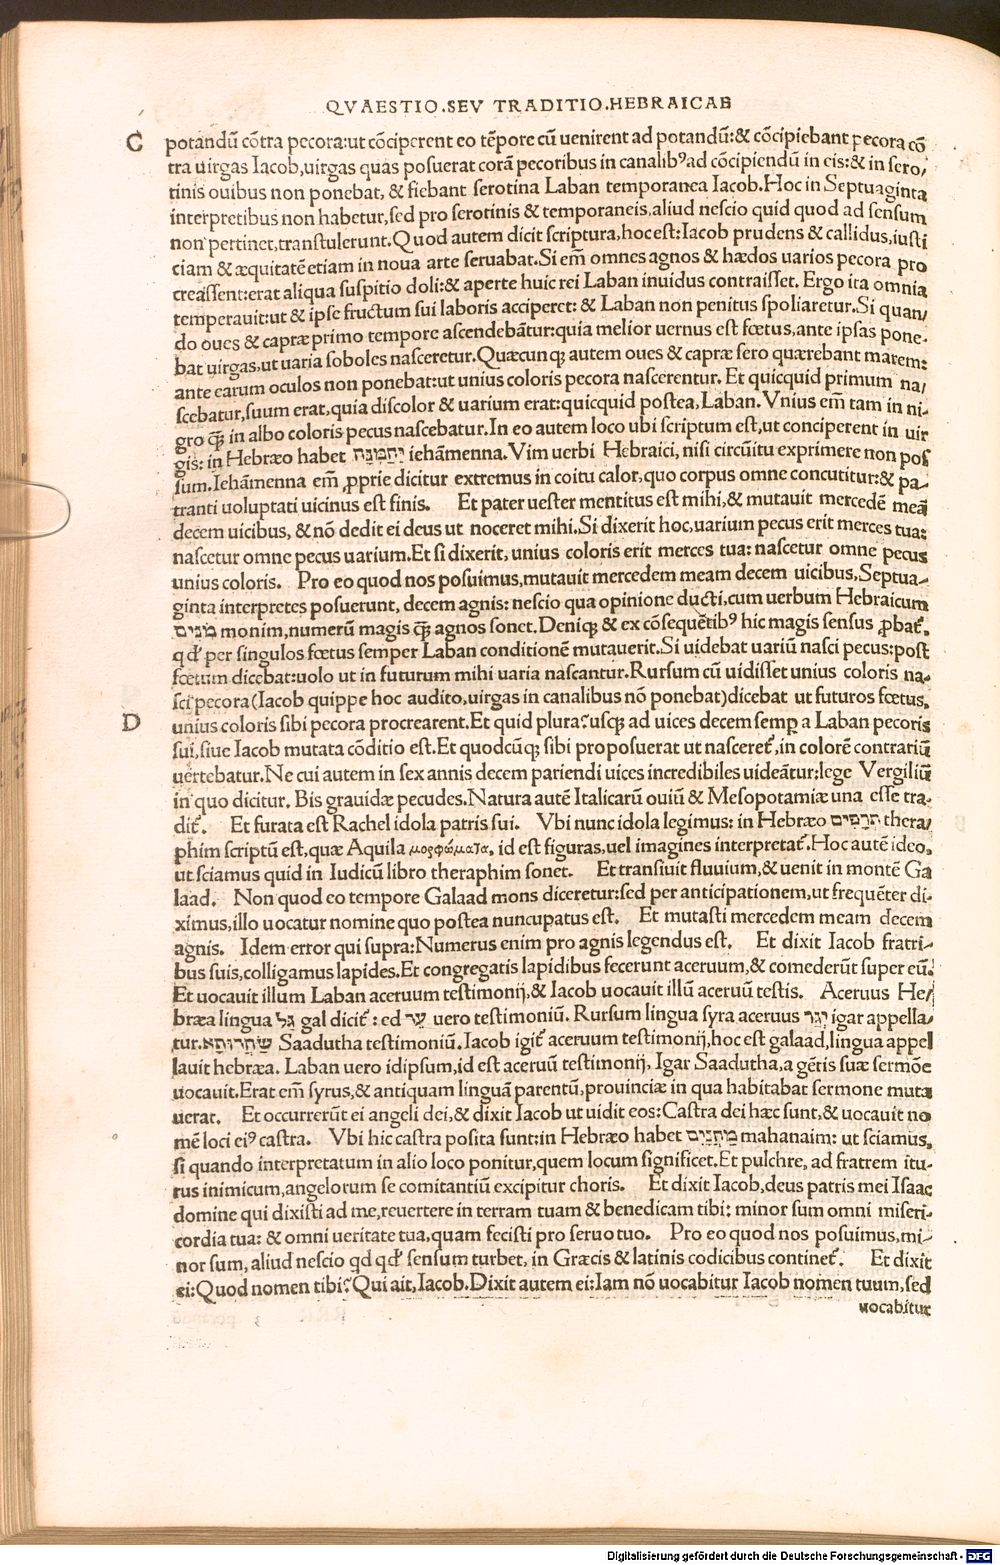 QVAESTIO.SEV TRADITIO.HEBRAICAE
C
potandũ cõtra pecora:ut cõciperent eo tẽpore cũ uenirent ad potandũ:& cõcipiebant pecora cõ
tra uirgas Iacob,uirgas quas posuerat corã pecoribus in canalibꝰ ad cõcipiendũ in eis:& in sero/
tinis ouibus non ponebat, & fiebant serotina Laban temporanea Iacob.Hoc in Septuaginta
interpretibus non habetur,sed pro serotinis & temporaneis,aliud nescio quid quod ad sensum
non pertinet,transtulerunt.Quod autem dicit scriptura,hocest:Iacob prudens & callidus,iusti
ciam & æquitatẽ etiam in noua arte seruabat.Si em̃ omnes agnos & hædos uarios pecora pro
creassent:erat aliqua suspitio doli:& aperte huic rei Laban inuidus contraisset. Ergo ita omnia
temperauit:ut & ipse fructum sui laboris acciperet: & Laban non penitus spoliaretur.Si quan/
do oues & capræ primo tempore ascendebãtur:quia melior uernus est fœtus,ante ipsas pone-
bat uirgas,ut uaria soboles nasceretur.Quæcunqꝫ autem oues & capræ sero quærebant marem:
ante earum oculos non ponebat:ut unius coloris pecora nascerentur. Et quicquid primum na/
scebatur,suum erat,quia discolor & uarium erat:quicquid postea,Laban.Vnius em̃ tam in ni-
gro q̃ꝫ in albo coloris pecus nascebatur.In eo autem loco ubi scriptum est,ut conciperent in uir
gis: in Hebræo habet יחמנה iehãmenna.Vim uerbi Hebraici, nisi circuĩtu exprimere non pos
sum.Iehãmenna em̃ ꝓprie dicitur extremus in coitu calor,quo corpus omne concutitur:& pa-
tranti uoluptati uicinus est finis. Et pater uester mentitus est mihi,& mutauit mercedẽ meã
decem uicibus, & nõ dedit ei deus ut noceret mihi.Si dixerit hoc,uarium pecus erit merces tua:
nascetur omne pecus uarium.Et si dixerit, unius coloris erit merces tua: nascetur omne pecus
unius coloris. Pro eo quod nos posuimus,mutauit mercedem meam decem uicibus,Septua-
ginta interpretes posuerunt, decem agnis: nescio qua opinione ducti,cum uerbum Hebraicum
מנים monim,numerũ magis q̃ꝫ agnos sonet.Deniqꝫ & ex cõsequẽtibꝰ hic magis sensus ꝓbat᷑.
q qd᷑ per singulos fœtus semper Laban conditionẽ mutauerit.Si uidebat uariũ nasci pecus:post
fœtum dicebat:uolo ut in futurum mihi uaria nascantur.Rursum cũ uidisset unius coloris na-
sci pecora(Iacob quippe hoc audito,uirgas in canalibus nõ ponebat)dicebat ut futuros fœtus,
D
unius coloris sibi pecora procrearent.Et quid plura?usqꝫ ad uices decem semꝑ a Laban pecoris
sui,siue Iacob mutata cõditio est.Et quodcũqꝫ sibi proposuerat ut nasceret᷑,in colorẽ contrariũ
uertebatur.Ne cui autem in sex annis decem pariendi uices incredibiles uideãtur:lege Vergiliũ
in quo dicitur. Bis grauidæ pecudes.Natura autẽ Italicarũ ouiũ & Mesopotamiæ una esse tra-
dit᷑. Et furata est Rachel idola patris sui. Vbi nunc idola legimus: in Hebræo תרפים thera/
phim scriptũ est,quæ Aquila μορφώματα, id est figuras,uel imagines interpretat᷑.Hoc autẽ ideo,
ut sciamus quid in Iudicũ libro theraphim sonet. Et transiuit fluuium,& uenit in montẽ Ga
laad. Non quod eo tempore Galaad mons diceretur:sed per anticipationem,ut frequẽter di-
ximus,illo uocatur nomine quo postea nuncupatus est. Et mutasti mercedem meam decem
agnis. Idem error qui supra:Numerus enim pro agnis legendus est. Et dixit Iacob fratri-
bus suis,colligamus lapides.Et congregatis lapidibus fecerunt aceruum,& comederũt super eũ.
Et uocauit illum Laban aceruum testimonij,& Iacob uocauit illũ aceruũ testis. Aceruus He/
bræa lingua גל gal dicit᷑ : ed ער uero testimoniũ. Rursum lingua syra aceruus יגר igar appella/
tur.שהרותא Saadutha testimoniũ.Iacob igit᷑ aceruum testimonij,hoc est galaad,lingua appel
lauit hebræa. Laban uero idipsum,id est aceruũ testimonij, Igar Saadutha,a gẽtis suæ sermõe
uocauit.Erat em̃ syrus,& antiquam linguã parentũ,prouinciæ in qua habitabat sermone muta
uerat. Et occurrerũt ei angeli dei,& dixit Iacob ut uidit eos:Castra dei hæc sunt,& uocauit no
mẽ loci eiꝰ castra. Vbi hic castra posita sunt:in Hebræo habet מחנים mahanaim: ut sciamus,
si quando interpretatum in alio loco ponitur,quem locum significet.Et pulchre, ad fratrem itu-
rus inimicum,angelorum se comitantiũ excipitur choris. Et dixit Iacob,deus patris mei Isaac
domine qui dixisti ad me,reuertere in terram tuam & benedicam tibi: minor sum omni miseri-
cordia tua: & omni ueritate tua,quam fecisti pro seruo tuo. Pro eo quod nos posuimus,mi-
nor sum, aliud nescio qd qd᷑ sensum turbet, in Græcis & latinis codicibus continet᷑. Et dixit
ei:Quod nomen tibi?Qui ait,Iacob.Dixit autem ei:Iam nõ uocabitur Iacob nomen tuum,sed
uocabitur
Digitalisierung gefördert durch die Deutsche Forschungsgemeinschaft - DFG